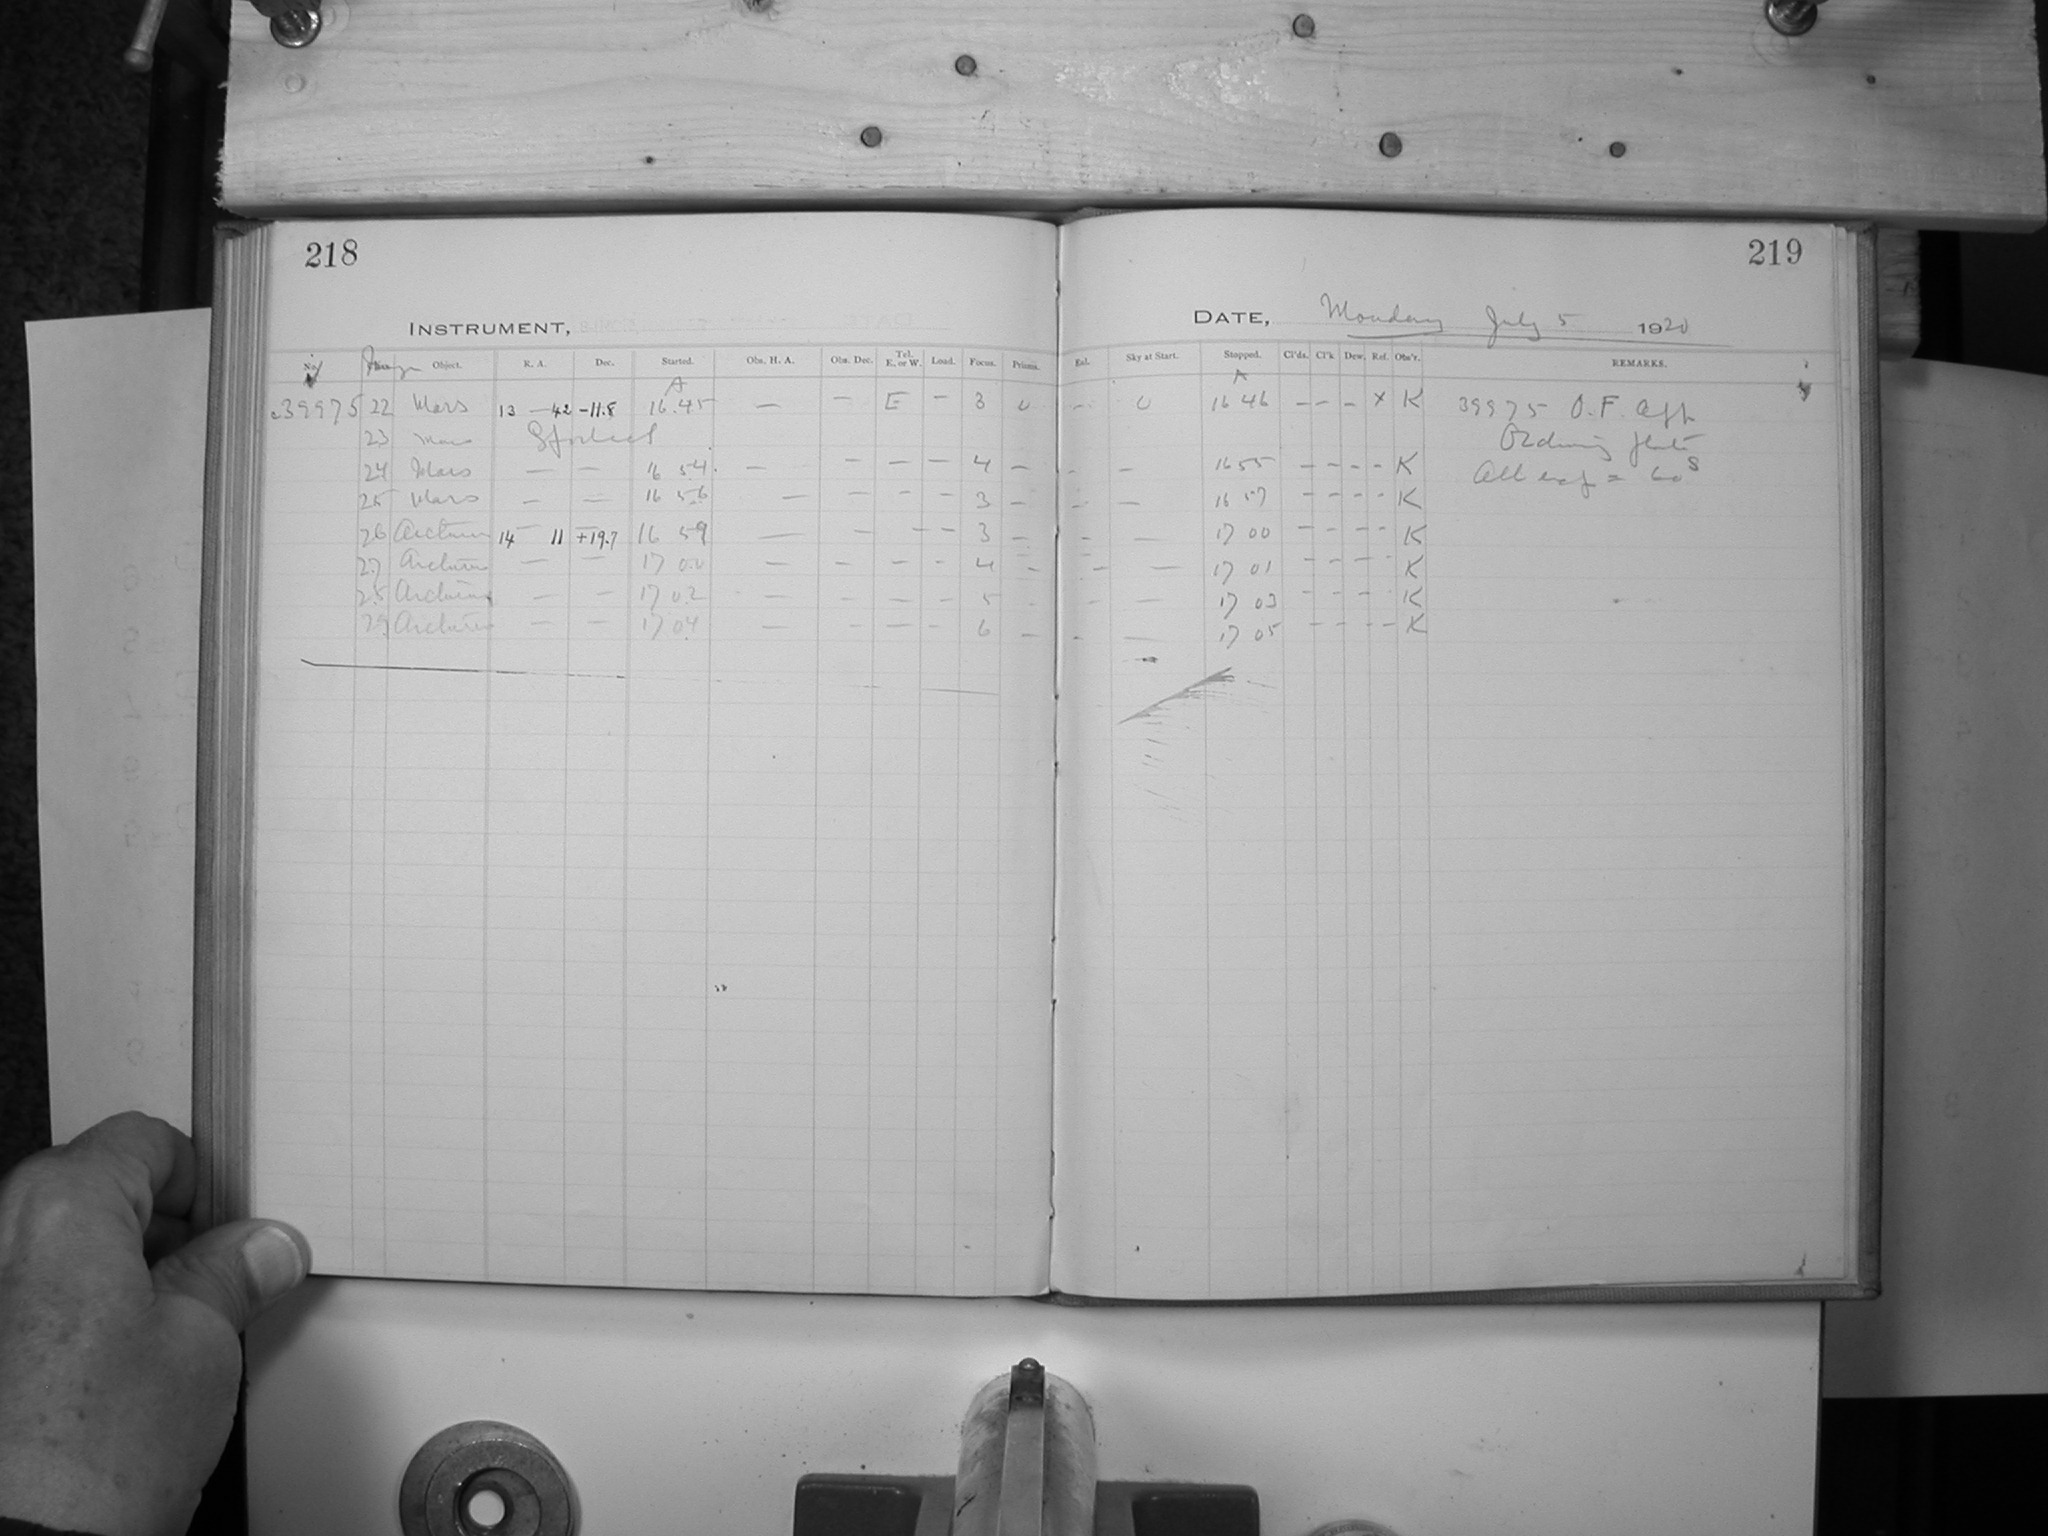 218
219
INSTRUMENT,
DATE, Monday July 5 1920
No. Object. R. A. Dec. Started. Obs. H. A. Obs. Dec. Tel. E. or W. Load. Focus. Prisms. Eal. Sky at Start. Stopped. Cl'ds. Cl'k Dew. Ref. Obs'r. REMARKS.
A A
c39975 22 Mars 13 — 42 -11.8 16.45 — — E — 3 0 — 0 16 46 — — — X K 39975 O.F. App
23 Mars
24 Mars — — 16 54 — — — — 4 — — — 16 55 — — — — K All exp = 60s
25 Mars — — 16 56 — — — — 3 — — — 16 57 — — — — K
26 Arcturus 14 11 +19.7 16 59 — — — — 3 — — — 17 00 — — — — K
27 Arcturus — — 17 00 — — — — 4 — — — 17 01 — — — — K
28 Arcturus — — 17 02 — — — — 5 — — — 17 03 — — — — K
29 Arcturus — — 17 04 — — — — 6 — — — 17 05 — — — — K